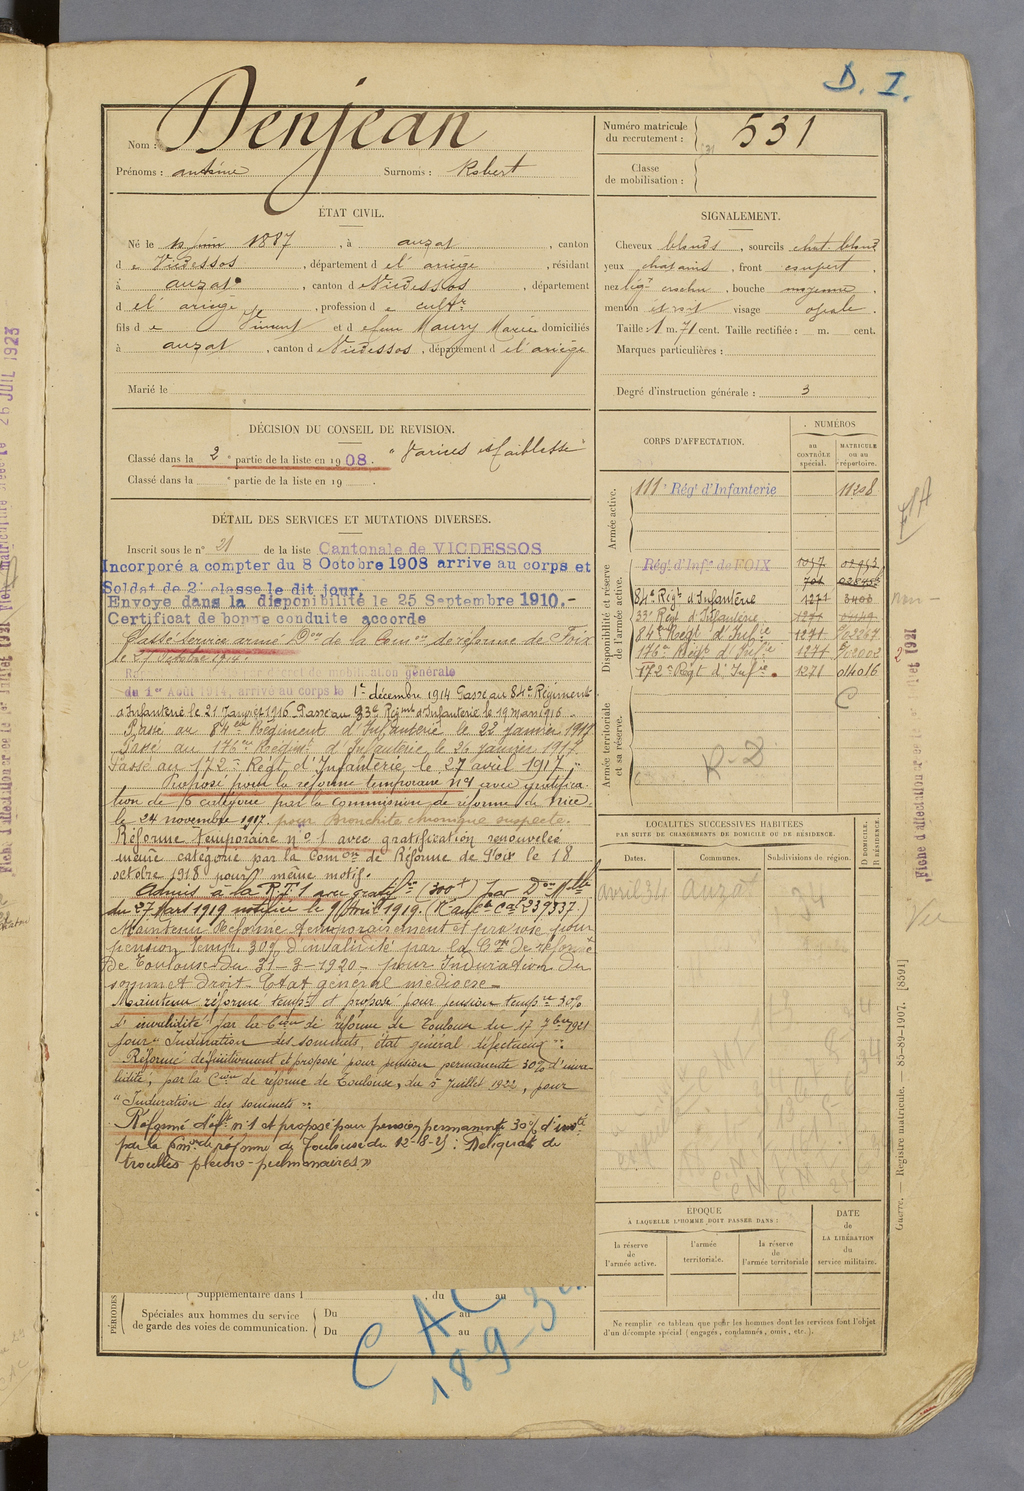 D. I.
Nom : Denjean
Prénoms : antoine Surnoms : Robert
Numéro matricule du recrutement : 531
Classe de mobilisation :
ÉTAT CIVIL.
Né le 12 juin 1887, à auzat, canton
de Vicdessos, département de l'ariège, résidant
à auzat, canton de Vicdessos, département
de l'ariège, profession de cultr
fils de Vincent et de feue Maury Marie domiciliés
à auzat, canton de Vicdessos, département de l'ariège
Marié le
SIGNALEMENT.
Cheveux blonds, sourcils chat. blond
yeux chatains, front couvert,
nez lég. crochu, bouche moyenne,
menton étroit visage ovale.
Taille : 1 m. 71 cent. Taille rectifiée : m. cent.
Marques particulières :
Degré d'instruction générale : 3
DÉCISION DU CONSEIL DE REVISION.
Classé dans la 2e partie de la liste en 1908. "Varices et faiblesse"
Classé dans la e partie de la liste en 19
DÉTAIL DES SERVICES ET MUTATIONS DIVERSES.
Inscrit sous le n° 21 de la liste Cantonale de VICDESSOS
Incorporé a compter du 8 Octobre 1908 arrive au corps et
Soldat de 2e classe le dit jour.
Envoye dans la disponibilité le 25 Septembre 1910.-
Certificat de bonne conduite accorde
Classé service armé Don de la Comon de réforme de Foix
le 27 Octobre 1914.
mobilisation générale
du 1er Août 1914, arrivé au corps le 1er décembre 1914 Passé au 84e Régiment
d'Infanterie le 21 Janvier 1916 Passé au 33e Régiment d'Infanterie le 19 mars 1916.
Passé au 84eme Régiment d'Infanterie le 22 janvier 1917
Passé au 176me Régimt d'Infanterie le 26 janvier 1917.
Passé au 172e Régt d'Infanterie le 27 avril 1917.
Proposé pour la réforme temporaire n°1 avec gratifica-
tion de 16 catégorie par la Commission de réforme de Nice,
le 24 novembre 1917. pour Bronchite chronique suspecte.
Réforme temporaire n°1 avec gratification renouvelée
même catégorie par la Comon de Réforme de Foix le 18
octobre 1918 pour même motif.
Admis à la R.T.1 avec gratifon (300f) par Don Mlle
du 27 Mars 1919 notifiée le Avril 1919.
Maintenu Réforme temporairement et proposé pour
pension temp. 30% d'invalidité par la Con de réforme
de Toulouse du 31-3-1920 - pour Induration du
sommet droit - Etat général médiocre -
Maintenu réformé tempt et proposé pour pension tempre 30%
d'invalidité par la Cion de réforme de Toulouse du 17 7bre 1921
pour "Induration des sommets, état général défectueux".
Réformé définitivement et proposé pour pension permanente 30% d'inva-
lidité, par la Cion de réforme de Toulouse, du 5 Juillet 1922, pour
"Induration des sommets".
Réformé déft n°1 et proposé pour pension permanente 30% d'invté
par la Comon de réforme de Toulouse du 12-8-25 : Reliquats de
troubles pleuro-pulmonaires"
CORPS D'AFFECTATION.
NUMÉROS
au CONTRÔLE spécial.
MATRICULE ou au répertoire.
Armée active.
111e Rég.t d'Infanterie 11208
Disponibilité et réserve de l'armée active.
Rég.t d'Infie de FOIX
84e Régt d'Infanterie 1271
33e Régt d'Infanterie 1271
84e Régt d'Infie 1271
176e Régt d'Infie 1271
172e Régt d'Infie. 1271 014016
C
Armée territoriale et sa réserve.
R-D
LOCALITÉS SUCCESSIVES HABITÉES
PAR SUITE DE CHANGEMENTS DE DOMICILE OU DE RÉSIDENCE.
D. DOMICILE. R. RÉSIDENCE.
Dates. Communes. Subdivisions de région.
avril 34 Auzat
EPOQUE
À LAQUELLE L'HOMME DOIT PASSER DANS :
la réserve de l'armée active.
l'armée territoriale.
la réserve de l'armée territoriale
DATE de LA LIBÉRATION du service militaire.
Ne remplir ce tableau que pour les hommes dont les services font l'objet
d'un décompte spécial (engagés, condamnés, omis, etc.).
PÉRIODES
Supplémentaire dans l , du au
Spéciales aux hommes du service de garde des voies de communication. Du au
Du au
Guerre. — Registre matricule. — 85-89-1907. [8591]
Vu